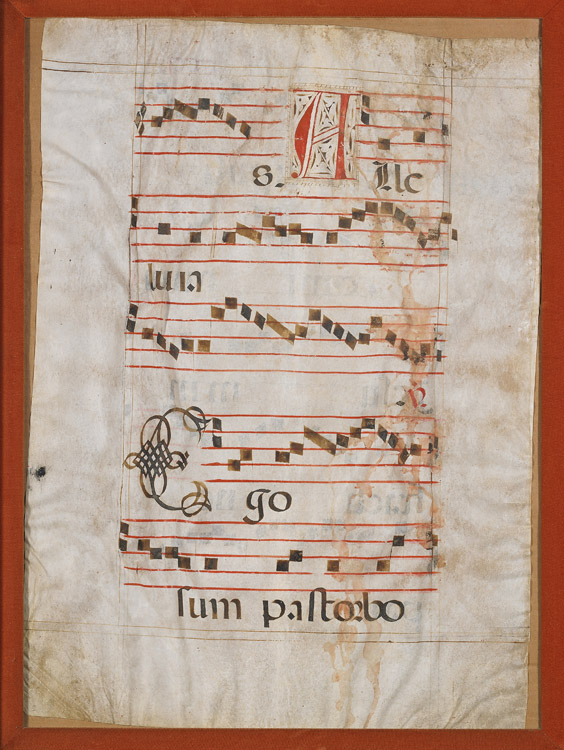 s. Alle
luia
V.
Ego
sum pastor bo